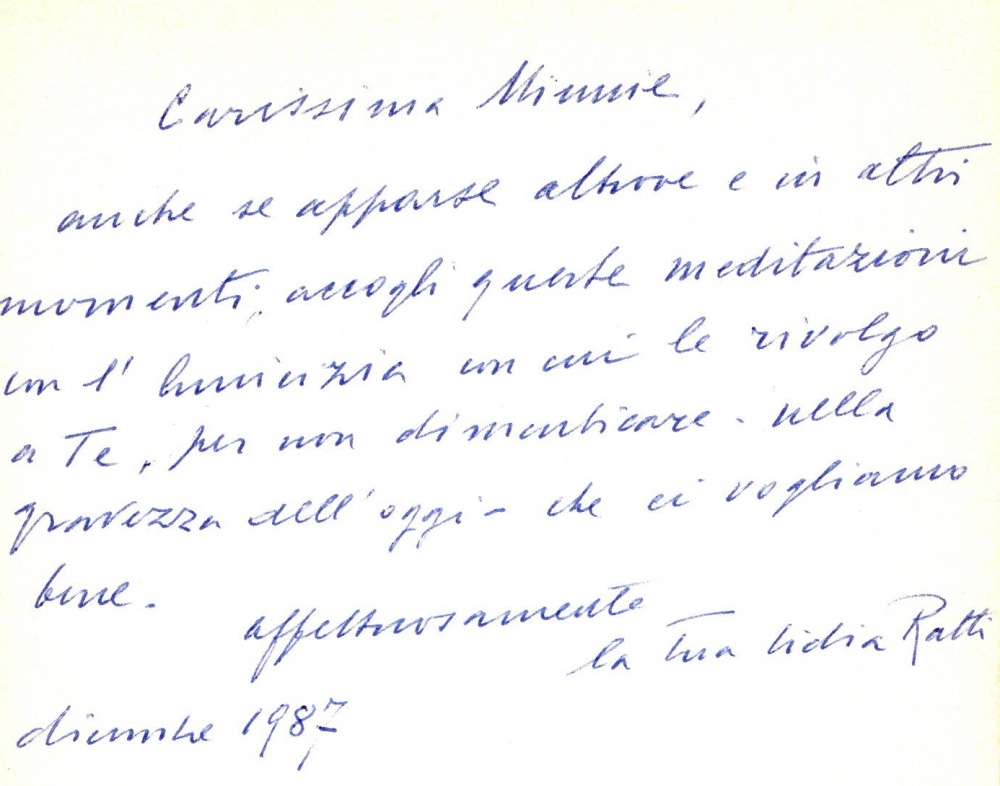 Carissima Minnie,
anche se apparse altrove e in altri
momenti, accogli queste meditazioni
con l'amicizia con cui le rivolgo
a Te, per non dimenticare - nella
gravezza dell'oggi - che ci vogliamo
bene.
affettuosamente
la tua Lidia Ratti
dicembre 1987